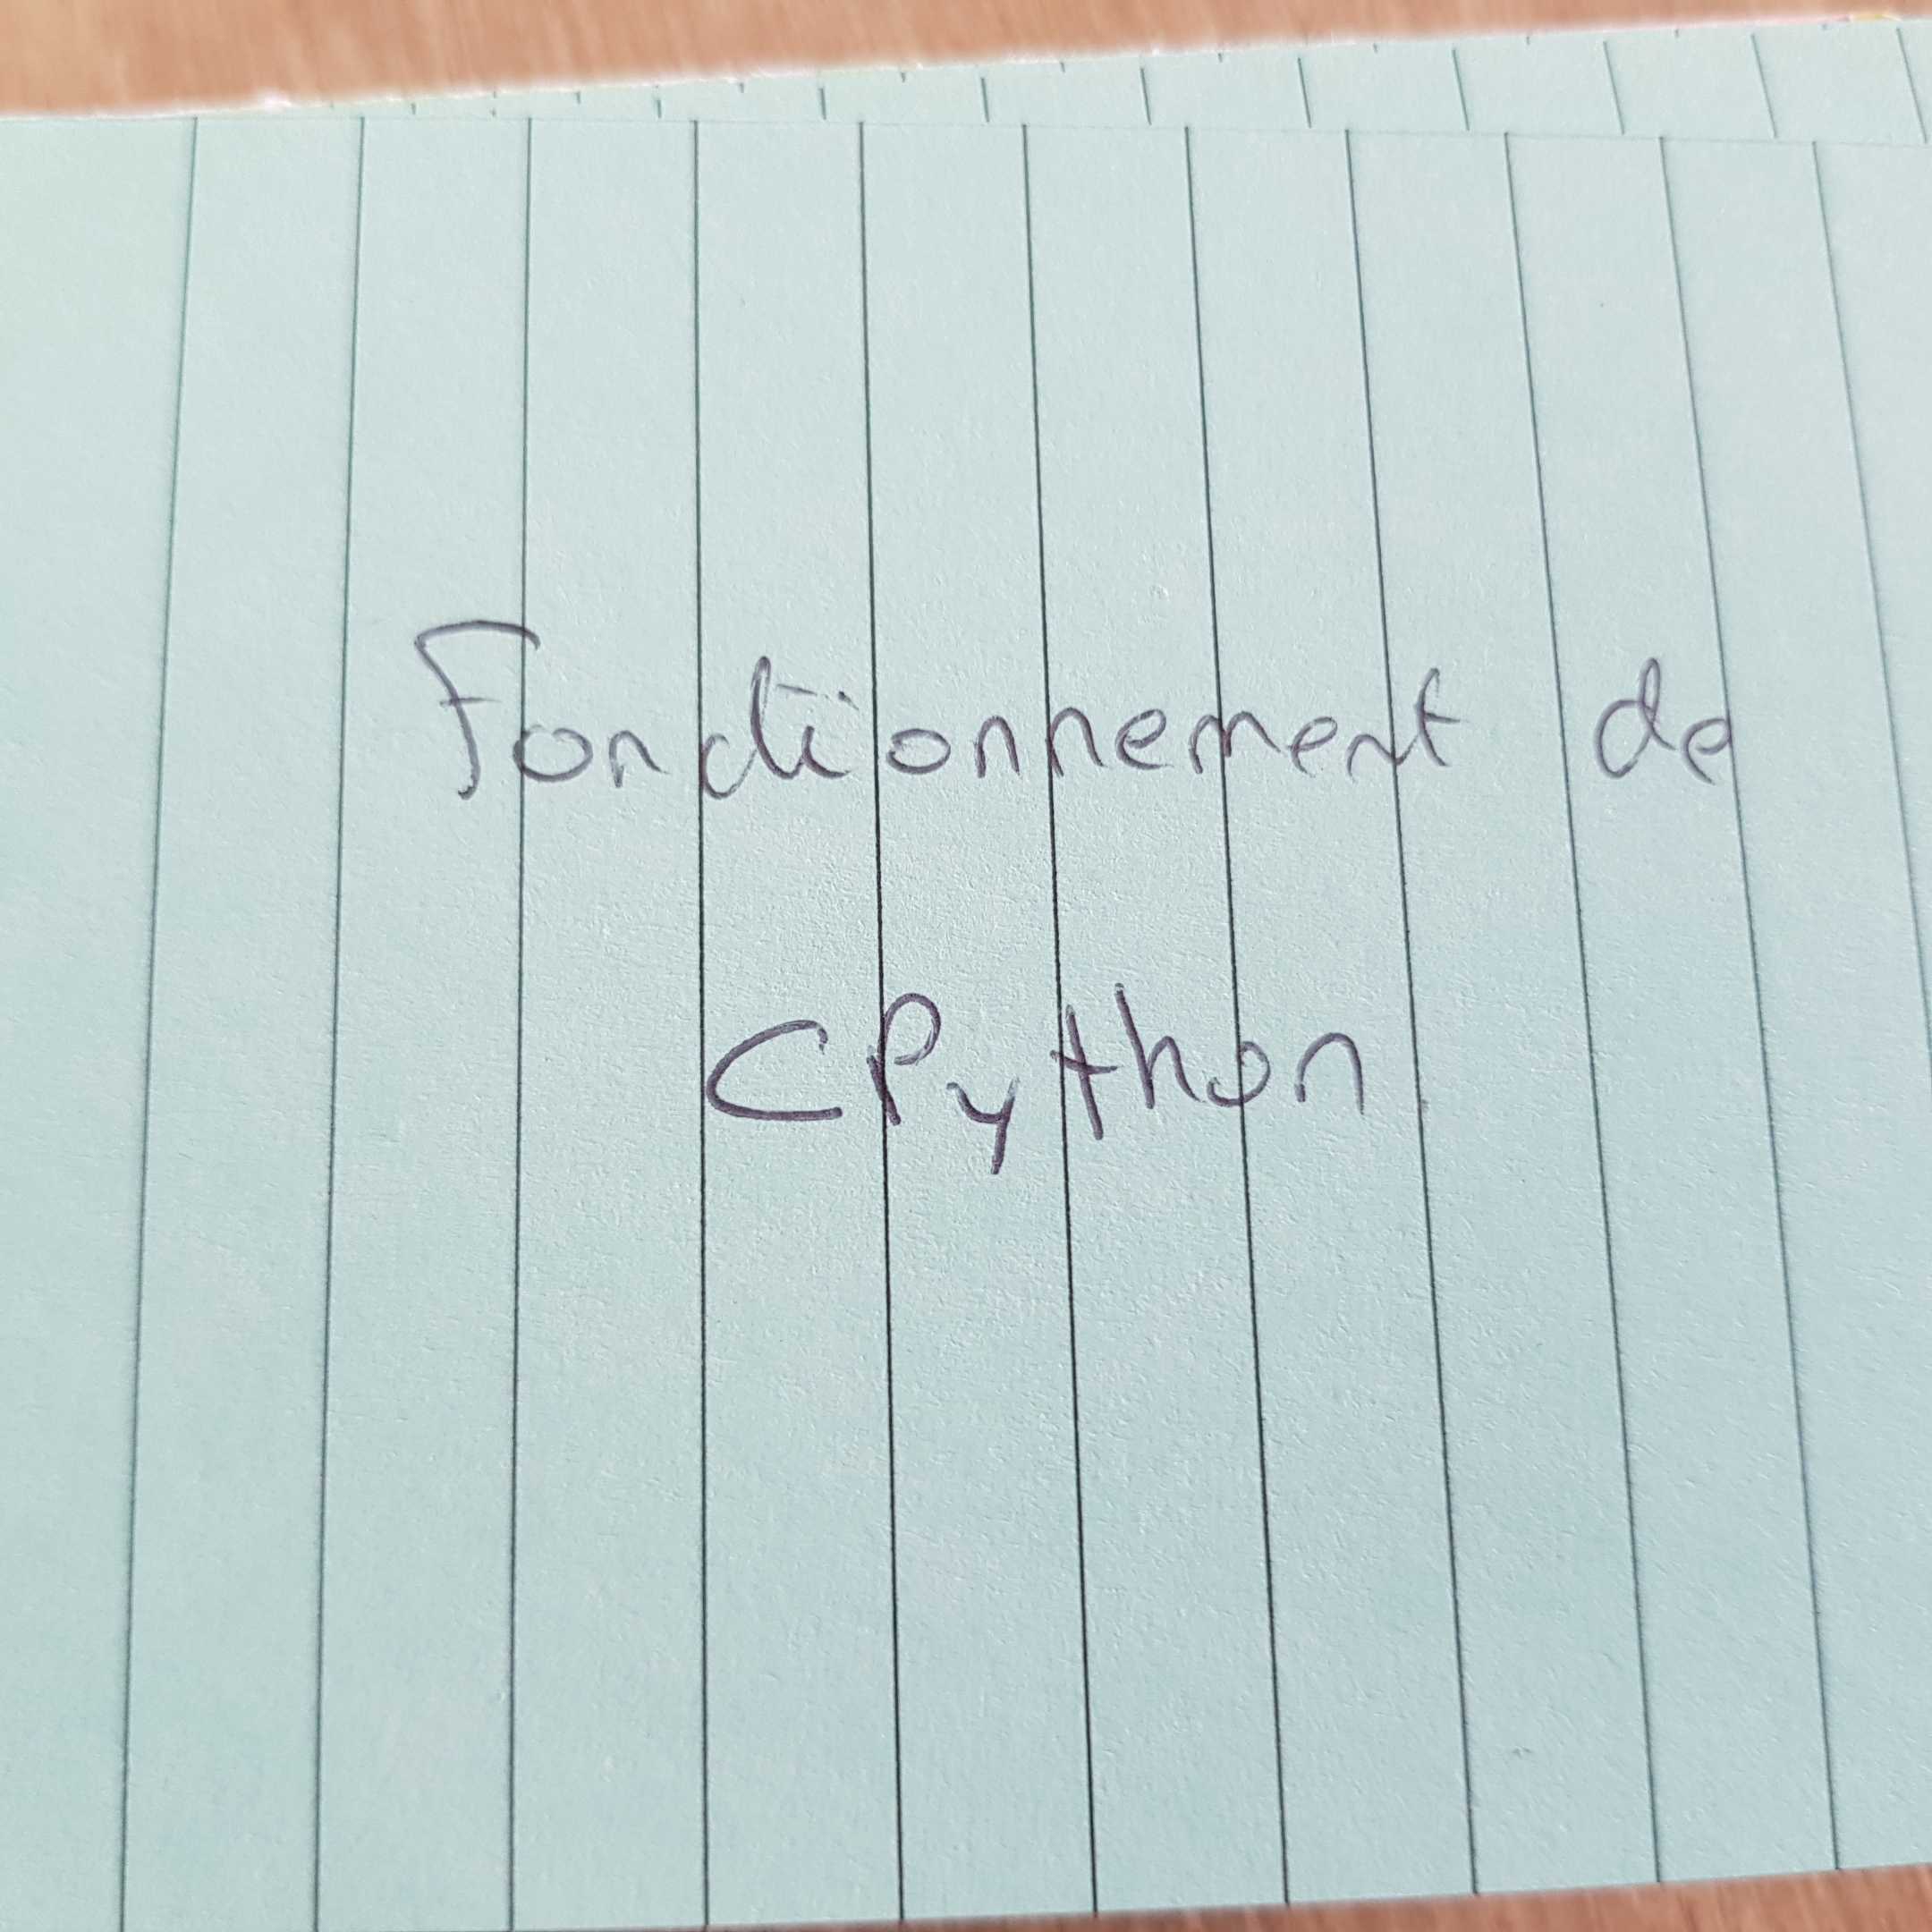 Fonctionnement de
CPython